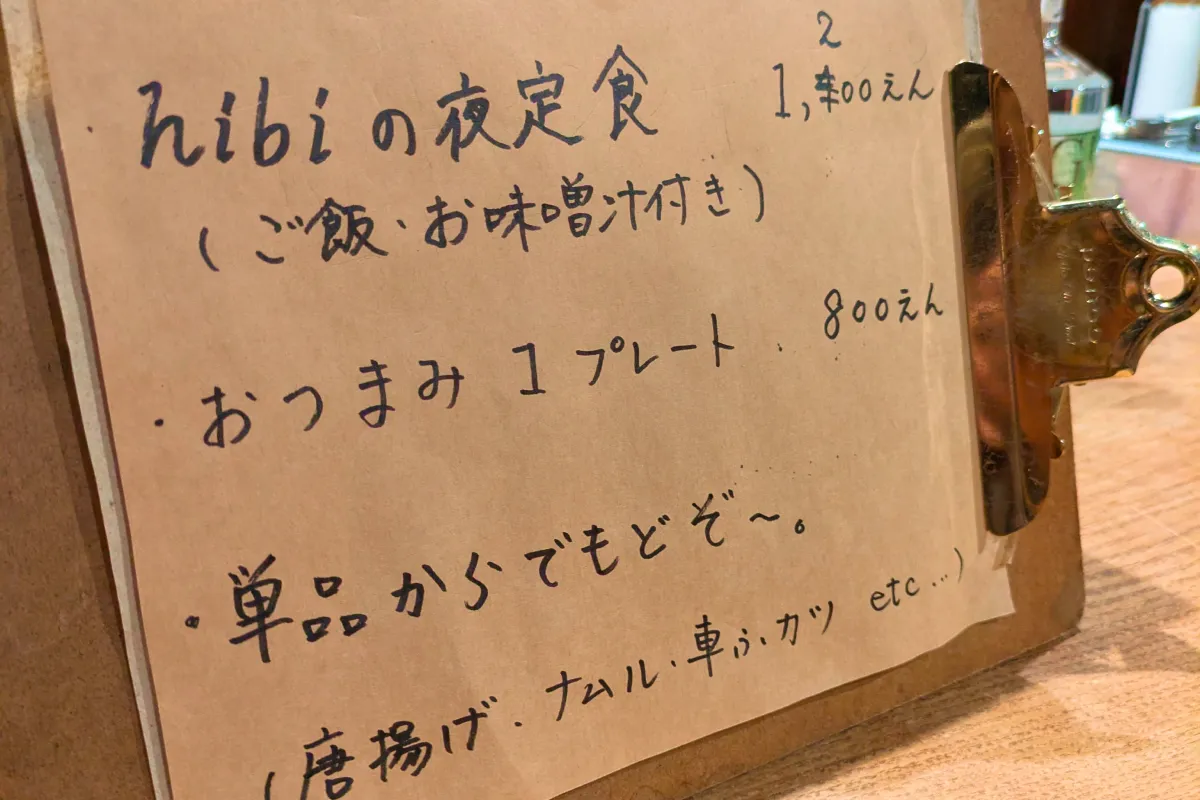 ・hibiの夜定食 1,200えん
(ご飯・お味噌汁付き)
・おつまみ 1プレート 800えん
・単品からでもどぞ〜。
(唐揚げ・ナムル・車ふ・カツ etc...)